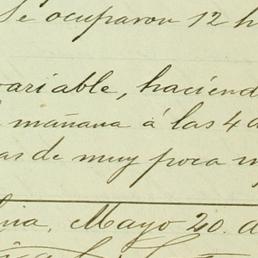 Se ocuparon 12 h
variable, haciend
mañana á las 4 d
as de muy poca
Mayo 20. d